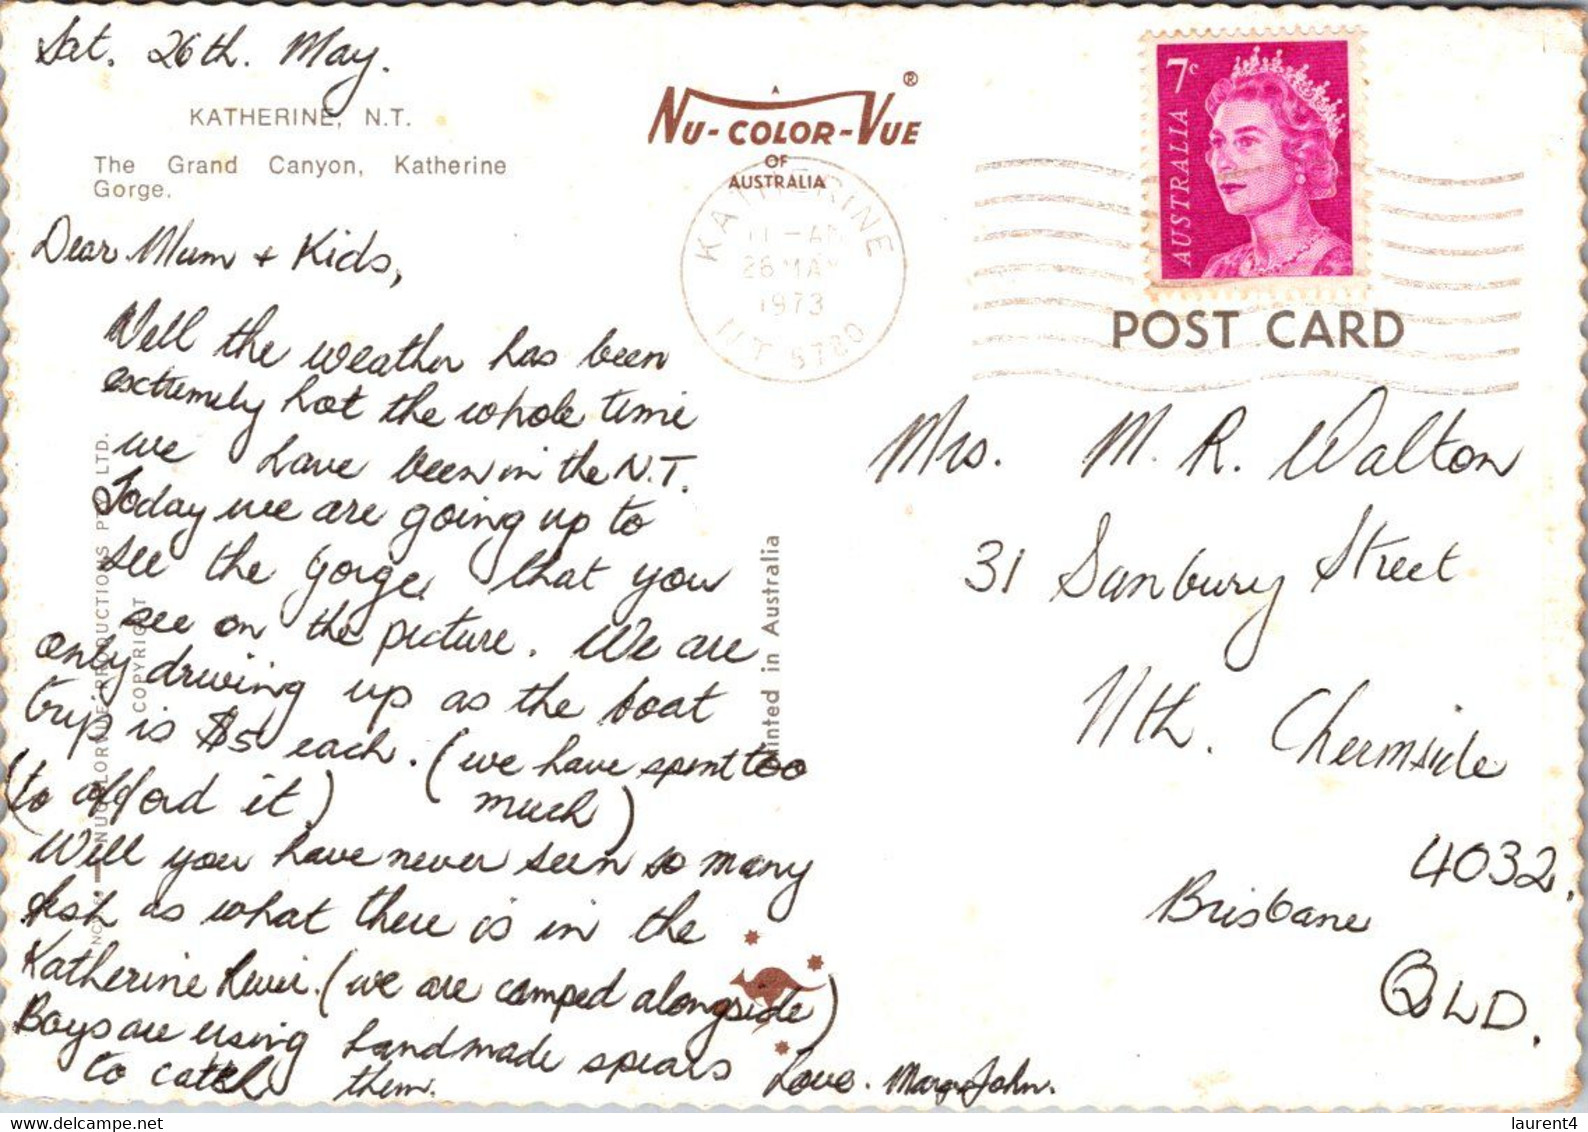 Sat. 26th. May.
KATHERINE, N.T.
The Grand Canyon, Katherine
Gorge.
Dear Mum + Kids,
Well the weather has been
extremely hot the whole time
we have been in the N.T.
Today we are going up to
see the Gorge that you
see on the picture. We are
only driving up as the boat
trip is $5 each. (we have spent too
much)
(to afford it)
Well you have never seen so many
fish as what there is in the
Katherine River. (we are camped alongside)
Boys are using handmade spears
to catch them.
Love. Marg + John.
NU-COLOR-VUE ®
OF
AUSTRALIA
KATHERINE
11-AM
28 MAY
1973
N.T 5780
7c
AUSTRALIA
POST CARD
Mrs. M. R. Walton
31 Sanbury Street
Nth. Chermside
4032,
Brisbane
QLD.
NUCOLORVUE PRODUCTIONS PTY. LTD.
COPYRIGHT
Printed in Australia
laurent4